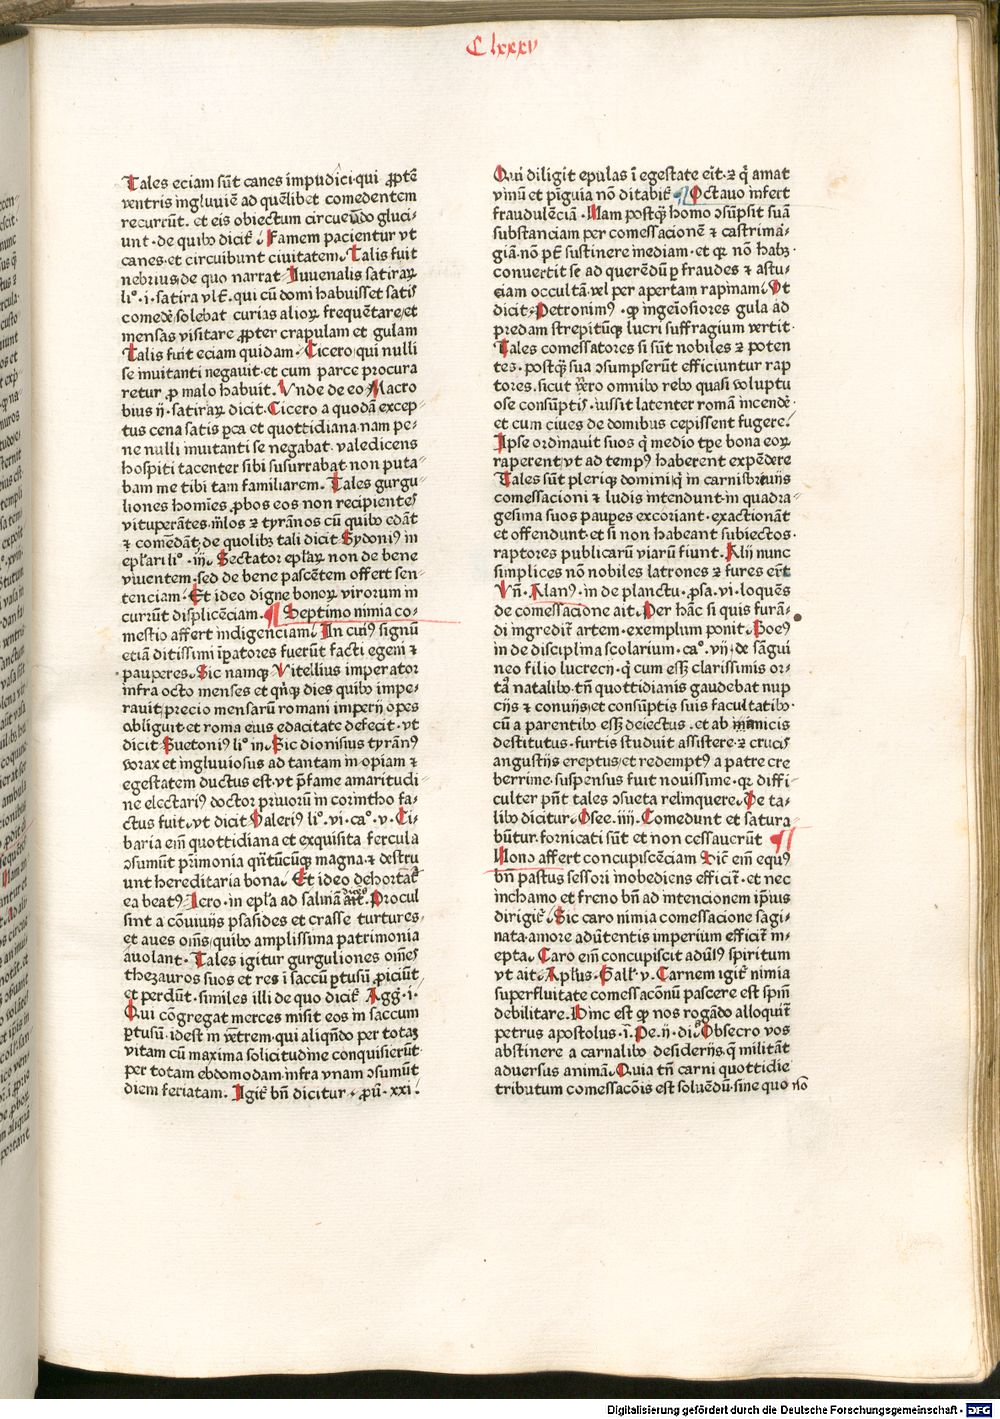 C lxxxv
Tales eciam sūt canes impudici·qui ꝓptē
ventris ingluuiē ad quēlibet comedentem
recurrūt. et eis obiectum circueūdo gluci⸗
unt·de quibꝯ dicit̄. Famem pacientur vt
canes·et circuibunt ciuitatem. Talis fuit
nebrius·de quo narrat Iuuenalis satiraꝝ
li°·i·satira vlt̄·qui cū domi habuisset satis
comede᷑·solebat curias alioꝝ frequētare/et
mensas visitare ꝓpter crapulam et gulam
Talis fuit eciam quidam·Cicero·qui nulli
se inuitanti negauit·et cum parce procura
retur ꝓ malo habuit. Vnde de eo Macro
bius ij·satiraꝝ dicit·Cicero a quodā excep⸗
tus cena satis ꝑca et quottidiana nam pe⸗
ne nulli inuitanti se negabat·valedicens
hospiti tacenter sibi susurrabat·non puta⸗
bam me tibi tam familiarem. Tales gurgu⸗
liones homīes ꝓbos eos non recipientes
vituperātes·m̄los ⁊ tyrānos cū quibꝯ edāt
⁊ comedāt;de quolibꝫ tali dicit Sydoniꝯ in
ep̄lari li°·iij. Sectator ep̄laꝝ non de bene
viuentem·sed de bene pascētem offert sen⸗
tenciam. Et ideo digne bonoꝝ virorum in
currūt displicēciam. ¶ Septimo nimia co⸗
mestio affert indigenciam. In cuiꝯ signū
etiā ditissimi īpatores fuerūt facti egeni ⁊
pauperes. Sic namqꝫ Vitellius imperator
infra octo menses et qn̄qꝫ dies quibꝯ impe⸗
rauit/precio mensarū romani imperij opes
obligauit·et roma eius edacitate defecit·vt
dicit Suetoniꝯ li° in. Sic dionisius tyrānꝯ
vorax et ingluuiosus ad tantam in opiam ⁊
egestatem ductus est·vt p̄ fame amaritudi⸗
ne electariꝯ doctor priuorū in corintho fa⸗
ctus fuit·vt dicit Valeriꝯ li°·vi·ca°·v·Ci⸗
baria em̄ quottidiana et exquisita fercula
ꝯsumūt p̄rimonia qn̄tūcūqꝫ magna·⁊ destru
unt hereditaria bona. Et ideo dehortat̄
ea beatꝯ Icro·in ep̄la ad saluinā dicēs ait. Procul
sint a cōuiuijs phasides et crasse turtures·
et aues om̄s·quibꝯ amplissima patrimonia
auolant. Tales igitur gurguliones om̄es
thezauros suos et res ī saccū ꝑtusū ꝓiciūt·
et perdūt·similes illi de quo dicit̄ Agg·i·
Qui cōgregat merces misit eos in saccum
ꝑtusū·idest in ventrem·qui aliqn̄do per totaꝫ
vitam cū maxima solicitudine conquisierūt·
per totam ebdomodam·infra vnam ꝯsumūt
diem feriatam. Igit̄ bn̄ dicitur·ꝓū·xxi.
Qui diligit epulas ī egestate erit·⁊ q̄ amat
vinū et pīguia nō ditabit̄ ¶ Octauo infert
fraudulēciā·Nam postqꝫ homo ꝯsūpsit suā
substanciam per comessacionē ⁊ castrima⸗
giā·nō pt̄ sustinere inediam·et qꝛ nō habꝫ·
conuertit se ad querēdū ꝑ fraudes ⁊ astu⸗
ciam occultā·vel per apertam rapinam. Vt
dicit·Petronimꝯ·ꝙ ingeiosiores gula ad
predam strepitūqꝫ lucri suffragium vertit·
Tales comessatores si sūt nobiles ⁊ poten
tes·postqꝫ sua ꝯsumpserūt efficiuntur rap
tores·sicut vero omnibꝯ rebꝯ quasi voluptu
ose consūptis·iussit latenter romā incende᷑·
et cum ciues de domibus cepissent fugere.
Ipse ordinauit suos q̄ medio tꝑe bona eoꝝ
raperent·vt ad tempꝯ haberent expēdere
Tales sūt pleriqꝫ domini·q̄ in carnisbreuijs
comessacioni ⁊ ludis intendunt·in quadra⸗
gesima suos pauꝑes excoriant·exactionāt
et offendunt·et si non habeant subiectos·
raptores publicarū viarū fiunt. Alij nunc
simplices nō nobiles latrones ⁊ fures erūt
Vn̄·Alanꝯ·in de planctu·ꝓsa·vi·loquēs
de comessacione ait. Per hāc si quis furā⸗
di ingredit̄ artem·exemplum ponit. Boeꝯ
in de disciplina scolarium·ca°·vij·de sāgui
neo filio lucrecij·q̄ cum esset clarissimis or⸗
tꝯ natalibꝯ·tn̄ quottidianis gaudebat nup
cijs ⁊ conuiuijs·et consūptis suis facultatibꝯ·
cū a parentibꝯ esset deiectus·et ab inimicis
destitutus·furtis studuit assistere·⁊ crucis
angustijs ereptus/et redemptꝯ a patre cre
berrime·suspensus fuit nouissime·qꝛ diffi⸗
culter pn̄t tales ꝯsueta relinquere. De ta⸗
libꝯ dicitur. Osee·iiij·Comedunt et satura⸗
būtur·fornicati sūt et non cessauerūt ¶
Nono affert concupiscēciam Sic em̄ equꝯ
bn̄ pastus sessori inobediens efficit̄·et nec
inchamo et freno bn̄ ad intencionem ip̄ius
dirigit̄. Sic caro nimia comessacione sagi⸗
nata·amore aduertentis imperium efficit̄ in⸗
epta. Caro em̄ concupiscit aduersꝯ spiritum
vt ait. Apl̄us·Gall·v·Carnem igit̄ nimia
superfluitate comessacōnū pascere est sp̄m
debilitare. Hinc est ꝙ nos rogādo alloquit̄
petrus apostolus·i·Pe·ij·di. Obsecro vos
abstinere a carnalibꝯ desiderijs·q̄ militāt
aduersus animā. Quia tn̄ carni quottidie
tributum comessacōis est soluēdū·sine quo nō
Digitalisierung gefördert durch die Deutsche Forschungsgemeinschaft - DFG